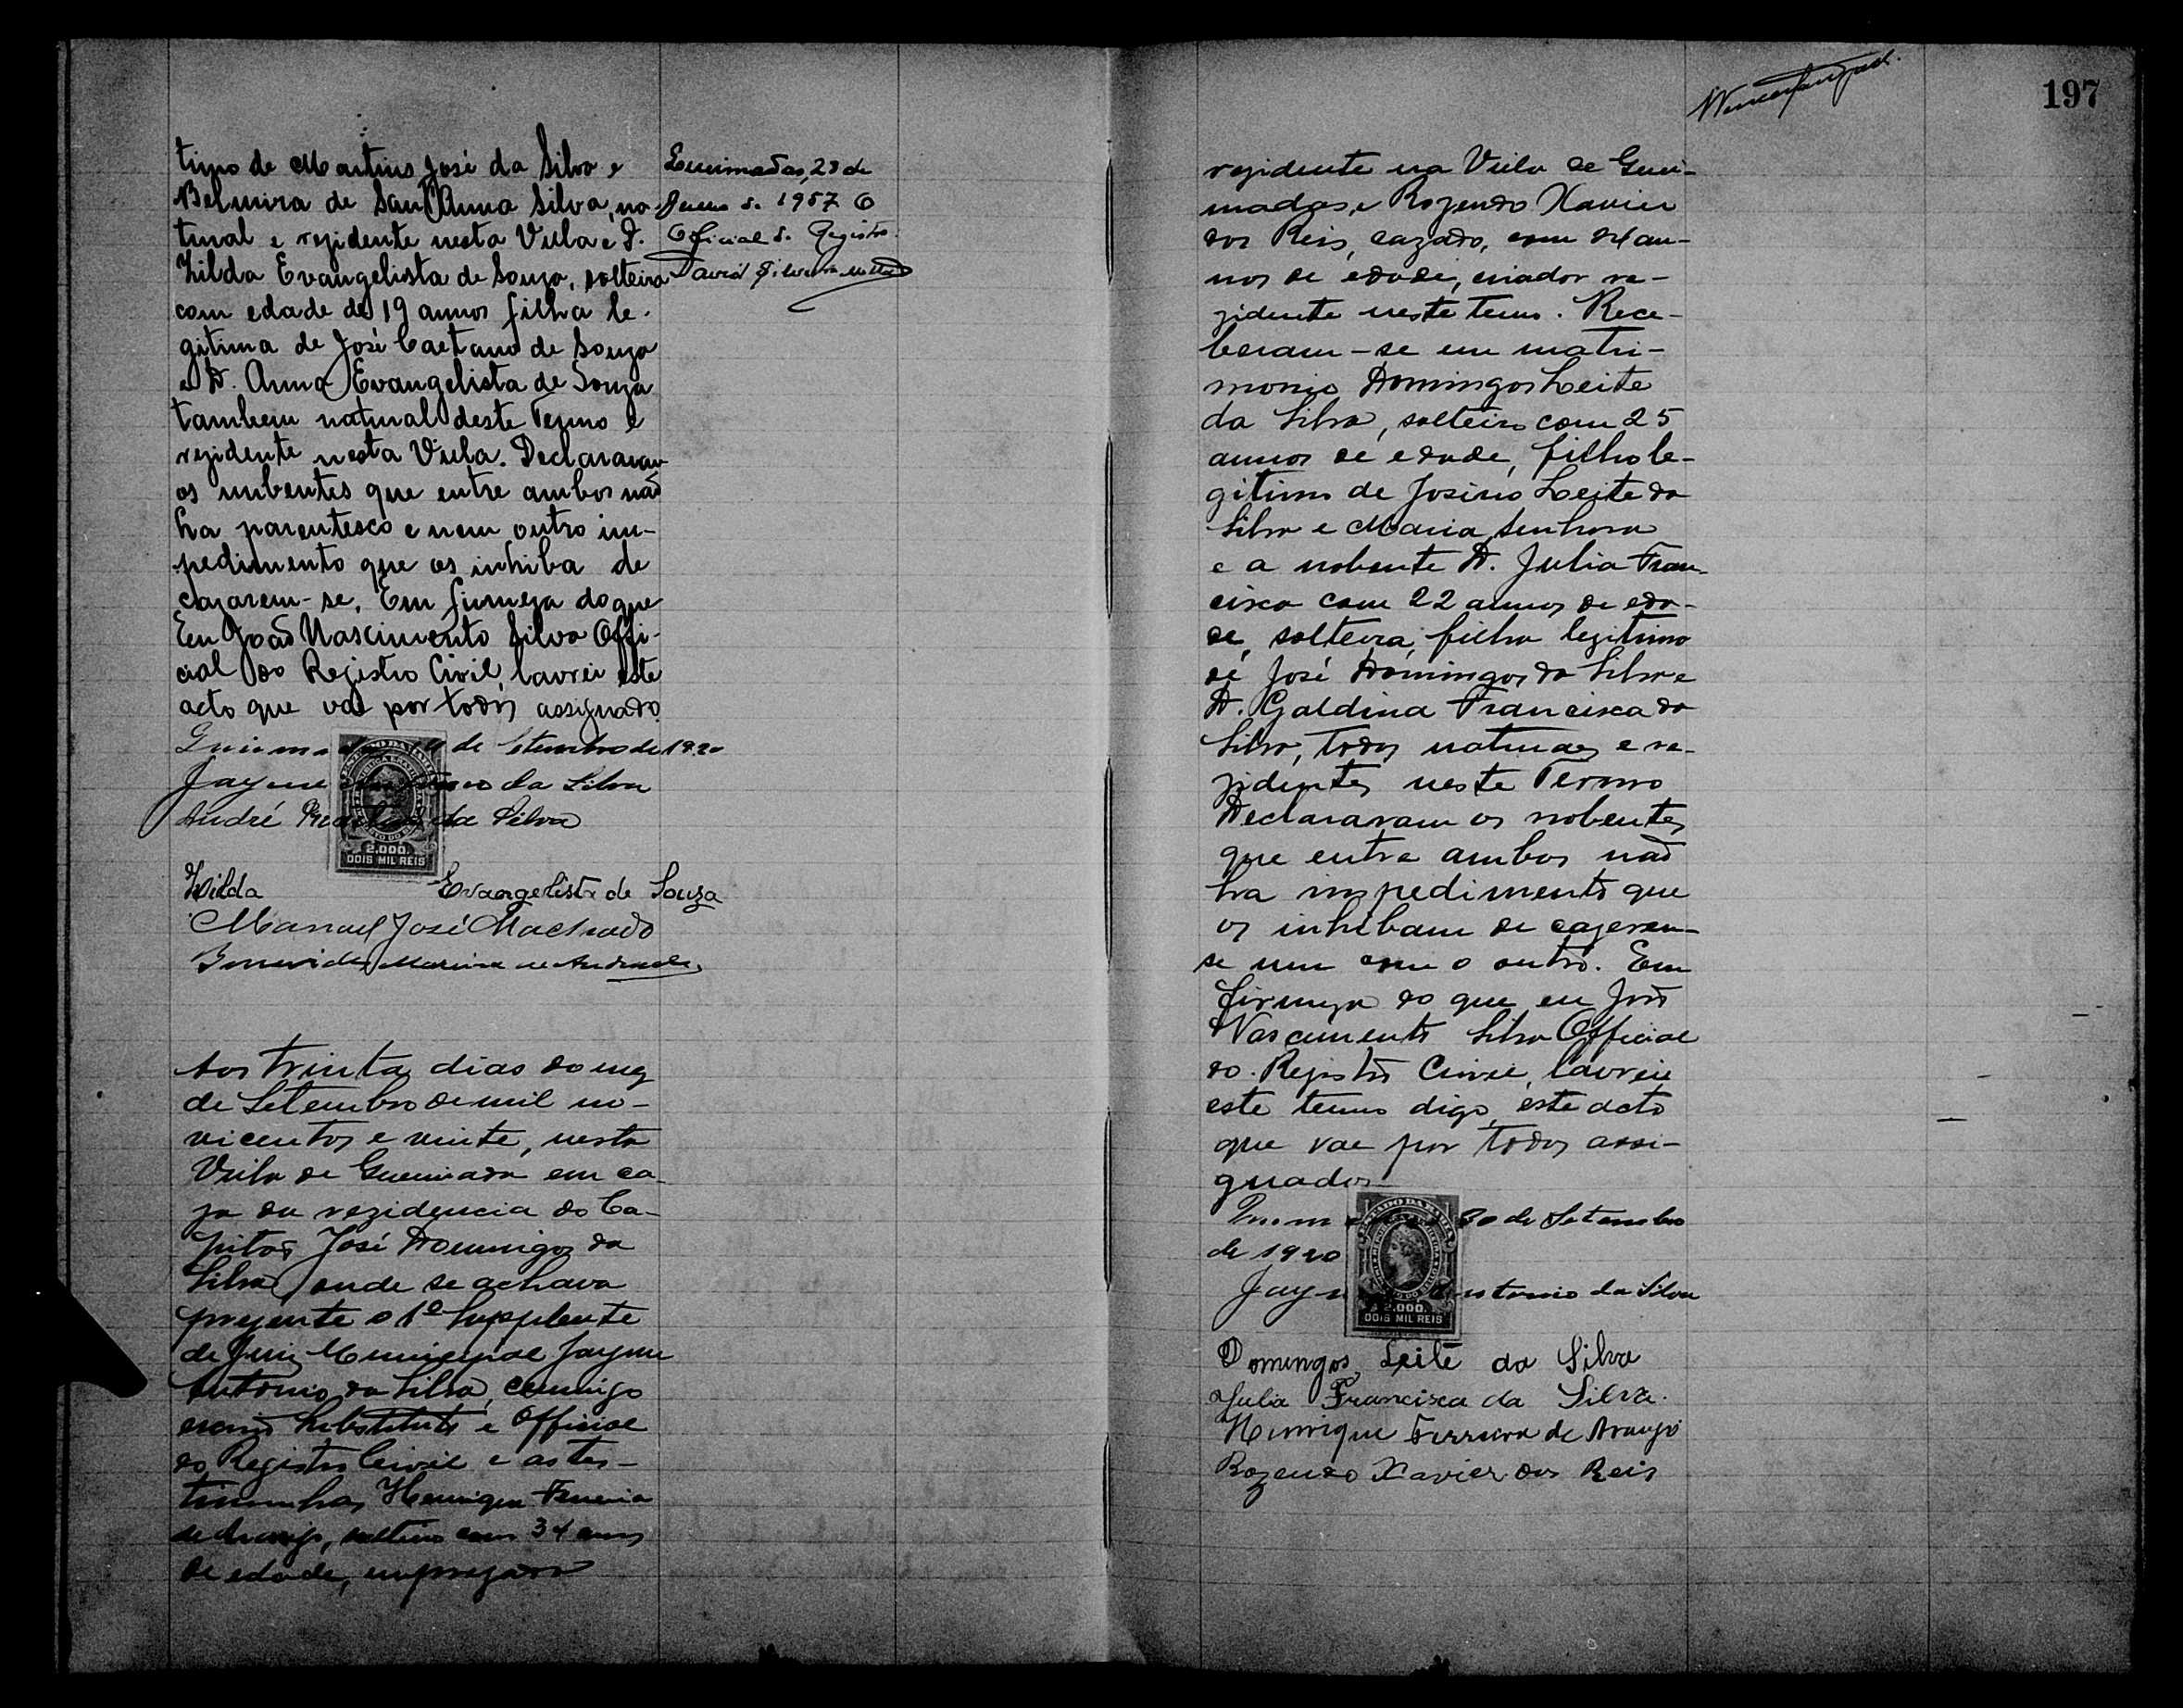 timo de Martins José da Silva e
Belmira de Sant'Anna Silva, na-
tural e rezidente nesta Villa e D.
Hilda Evangelista de Souza, solteira
com edade de 19 annos filha le-
gitima de José Caetano de Souza
e D. Anna Evangelista de Souza
tambem natural deste Termo e
rezidente nesta Villa. Declararam
os nubentes que entre ambos não
ha parentesco e nem outro im-
pedimento que os inhiba de
cazarem-se. Em firmeza do que
Eu João Nascimento Silva Offi-
cial do Registro Civil, lavrei este
acto que vae por todos assignado
de Setembro de 1920
Jayme da Silva
André Martins da Silva
Hilda Evangelista de Souza
Manoel José Machado
de Andrade
Queimadas, 28 de
de 1957 O
Oficial do Registro
David Silveira
ESTADO DA BAHIA
2.000
DOIS MIL REIS
Aos trinta dias do mez
de Setembro de mil no-
vicentos e vinte, nesta
Villa de Queimadas em ca-
za da rezidencia do Ca-
pitão José Domingos da
Silva, onde se achava
prezente o 1º Supplente
de Juiz Municipal Jayme
Antonio da Silva, commigo
escrivão Substituto e Official
do Registro Civil e as tes-
timunhas Henrique Ferreira
de Araujo, solteiro com 34 annos
de edade, empregado
197
rezidente na Villa de Quei-
madas, e Rozendo Xavier
dos Reis, cazado, com an-
nos de edade, criador re-
zidente neste termo. Rece-
beram-se em matri-
monio Domingos Leite
da Silva, solteiro com 25
annos de edade, filho le-
gitimo de Josino Leite da
Silva e Maria Senhora
e a nobente D. Julia Fran-
cisca com 22 annos de eda-
de, solteira, filha legitima
de José Domingos da Silva e
D. Galdina Francisca da
Silva, todos naturaes e re-
zidentes neste Termo
Declararam os nobentes
que entre ambos não
ha impedimento que
os inhibam de cazerem-
se um com o outro. Em
firmeza do que eu João
Nascimento Silva Official
do Registro Civil, lavrei
este termo digo, este acto
que vae por todos assi-
gnados
30 de Setembro
de 1920
Jayme Antonio da Silva
ESTADO DA BAHIA
2.000
DOIS MIL REIS
Domingos Leite da Silva
Julia Francisca da Silva.
Henrique Ferreira de Araujo
Rozendo Xavier dos Reis